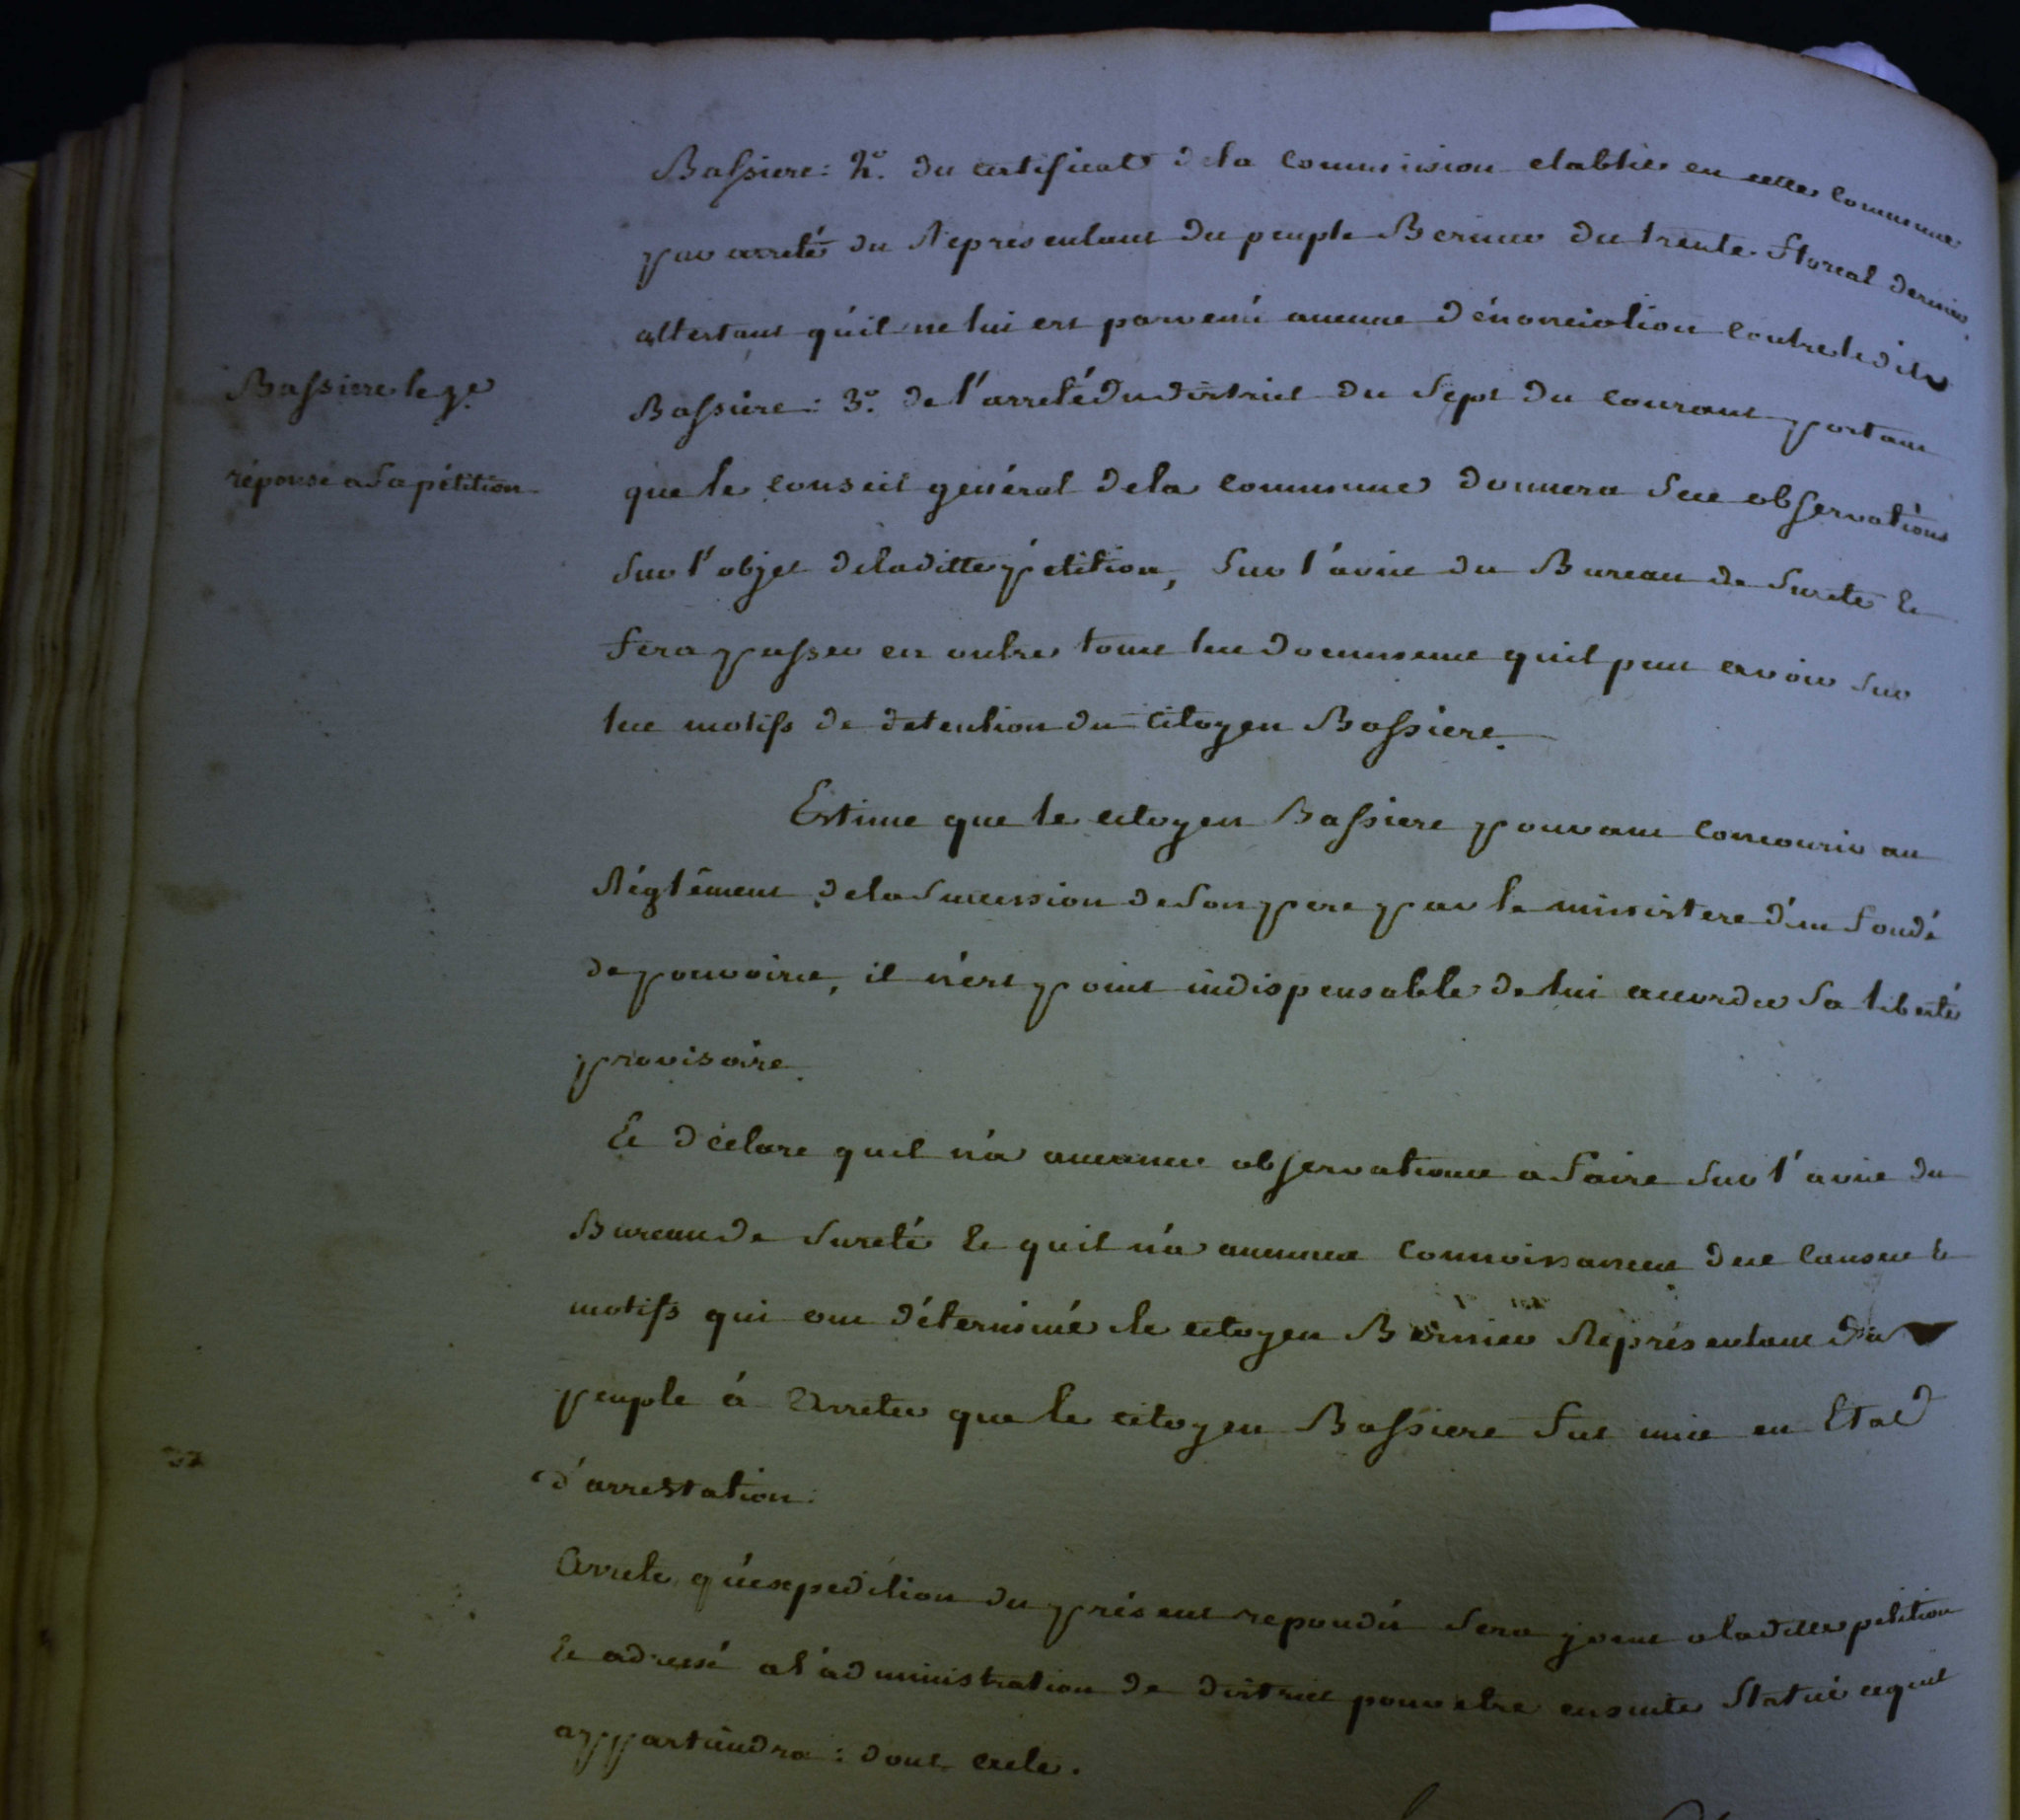 Bassiere : 2°. du certificat de la commission etablie en cette commune
par arreté du Représentant du peuple Bernier du trente floreal dernier
attestant qu'il ne lui est parvenú aucune dénonciation contre ledit
Bassiere : 3°. de l'arreté du district du sept du courant portant
Bassiere le je.
que le conseil général de la commune donnera ses observations
réponse a sa pétition
sur l'objet de la ditte pétition, sur l'avis du Bureau de sureté et
fera passer en outre tous les documens qu'il peut avoir sur
les motifs de detention du citoyen Bassiere.
Estime que le citoyen Bassiere pouvant concourir au
Réglement de la succession de son pere par le ministere d'un fondé
de pouvoirs, il n'est point indispensable de lui accorder sa liberté
provisoire.
Et déclare quil n'a aucunes observations a faire sur l'avis du
Bureau de sureté et quil n'a aucunes connoissances des causes et
motifs qui ont déterminé le citoyen Bernier Représentant du
peuple á arreter que le citoyen Bassiere fut mis en Etat
d'arrestation.
Arrete qu'expedition du présent repondú sera joint a la ditte pétition
et adressé a l'administration de district pour etre ensuite statué ce quil
appartiendra : dont acte.